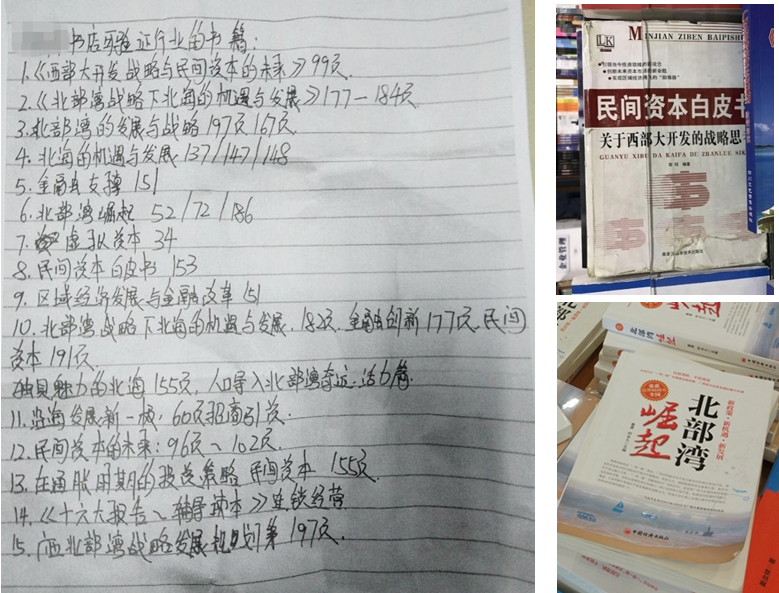 书店验证行业的书籍：
1.《西部大开发战略与民间资本的未来》99页.
2.《北部湾战略下北海的机遇与发展》177－184页
3.北部湾的发展与战略197页167页
4.北海的机遇与发展137/147/148
5.金融支撑151
6.北部湾崛起 52/72/186
7.虚拟资本 34
8.民间资本白皮书 153
9.区域经济发展与金融改革 151
10.北部湾战略下北海的机遇与发展.182页.金融创新177页.民间
资本191页.
独具魅力的北海155页，人口导入北部湾命运·活力篇
11.沿海发展新一极，60页招商引资.
12.民间资本的未来：96页、102页.
13.在通胀周期的投资策略 民间资本 155页
14.《十六大报告、辅导读本》连锁经营
15.广西北部湾战略发展规划第197页.
LK
MINJIAN ZIBEN BAIPISH
民间资本白皮书
关于西部大开发的战略思
GUANYU XIBU DA KAIFA DE ZHANLUE SIK
编著
企业管理
北部湾
崛起
新政策·新机遇·新发展
中国经济出版社